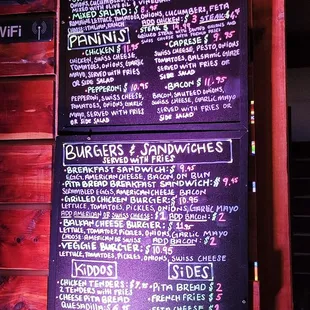 WiFi
MIXED SALAD:
ROMAINE LETTUCE, TOMATOES, ONIONS, CUCUMBERS, FETA
ADD CHICKEN $3 STEAK $4
PANINIS
STEAK
CHICKEN $11.75
CHICKEN, SWISS CHEESE,
TOMATOES, ONIONS, GARLIC
MAYO, SERVED WITH FRIES
OR SIDE SALAD
CAPRESE $9.95
SWISS CHEESE, PESTO, ONIONS
TOMATOES, BALSAMIC GLAZE
SERVED WITH FRIES OR
SIDE SALAD
PEPPERONI $10.95
PEPPERONI, SWISS CHEESE,
TOMATOES, ONIONS, GARLIC
MAYO, SERVED WITH FRIES
OR SIDE SALAD
BACON $11.95
BACON, SAUTEED ONIONS,
SWISS CHEESE, GARLIC MAYO
SERVED WITH FRIES OR
SIDE SALAD
BURGERS & SANDWICHES
SERVED WITH FRIES
BREAKFAST SANDWICH: $9.95
EGGS, AMERICAN CHEESE, BACON, ON BUN
PITA BREAD BREAKFAST SANDWICH: $9.95
SCRAMBLED EGGS, AMERICAN CHEESE, BACON
GRILLED CHICKEN BURGER: $10.95
LETTUCE, TOMATO, PICKLES, ONIONS, GARLIC MAYO
ADD AMERICAN OR SWISS CHEESE: $1 ADD BACON: $2
BALKAN CHEESE BURGER:
LETTUCE, TOMATO, PICKLES, ONIONS, GARLIC MAYO
CHOOSE: AMERICAN OR SWISS ADD BACON: $2
VEGGIE BURGER: $10.95
LETTUCE, TOMATOES, PICKLES, ONIONS, SWISS CHEESE
KIDDOS
CHICKEN TENDERS:
2 TENDERS WITH FRIES
CHEESE PITA BREAD
QUESADILLA
SIDES
PITA BREAD $2
FRENCH FRIES $5
FETA CHEESE $2